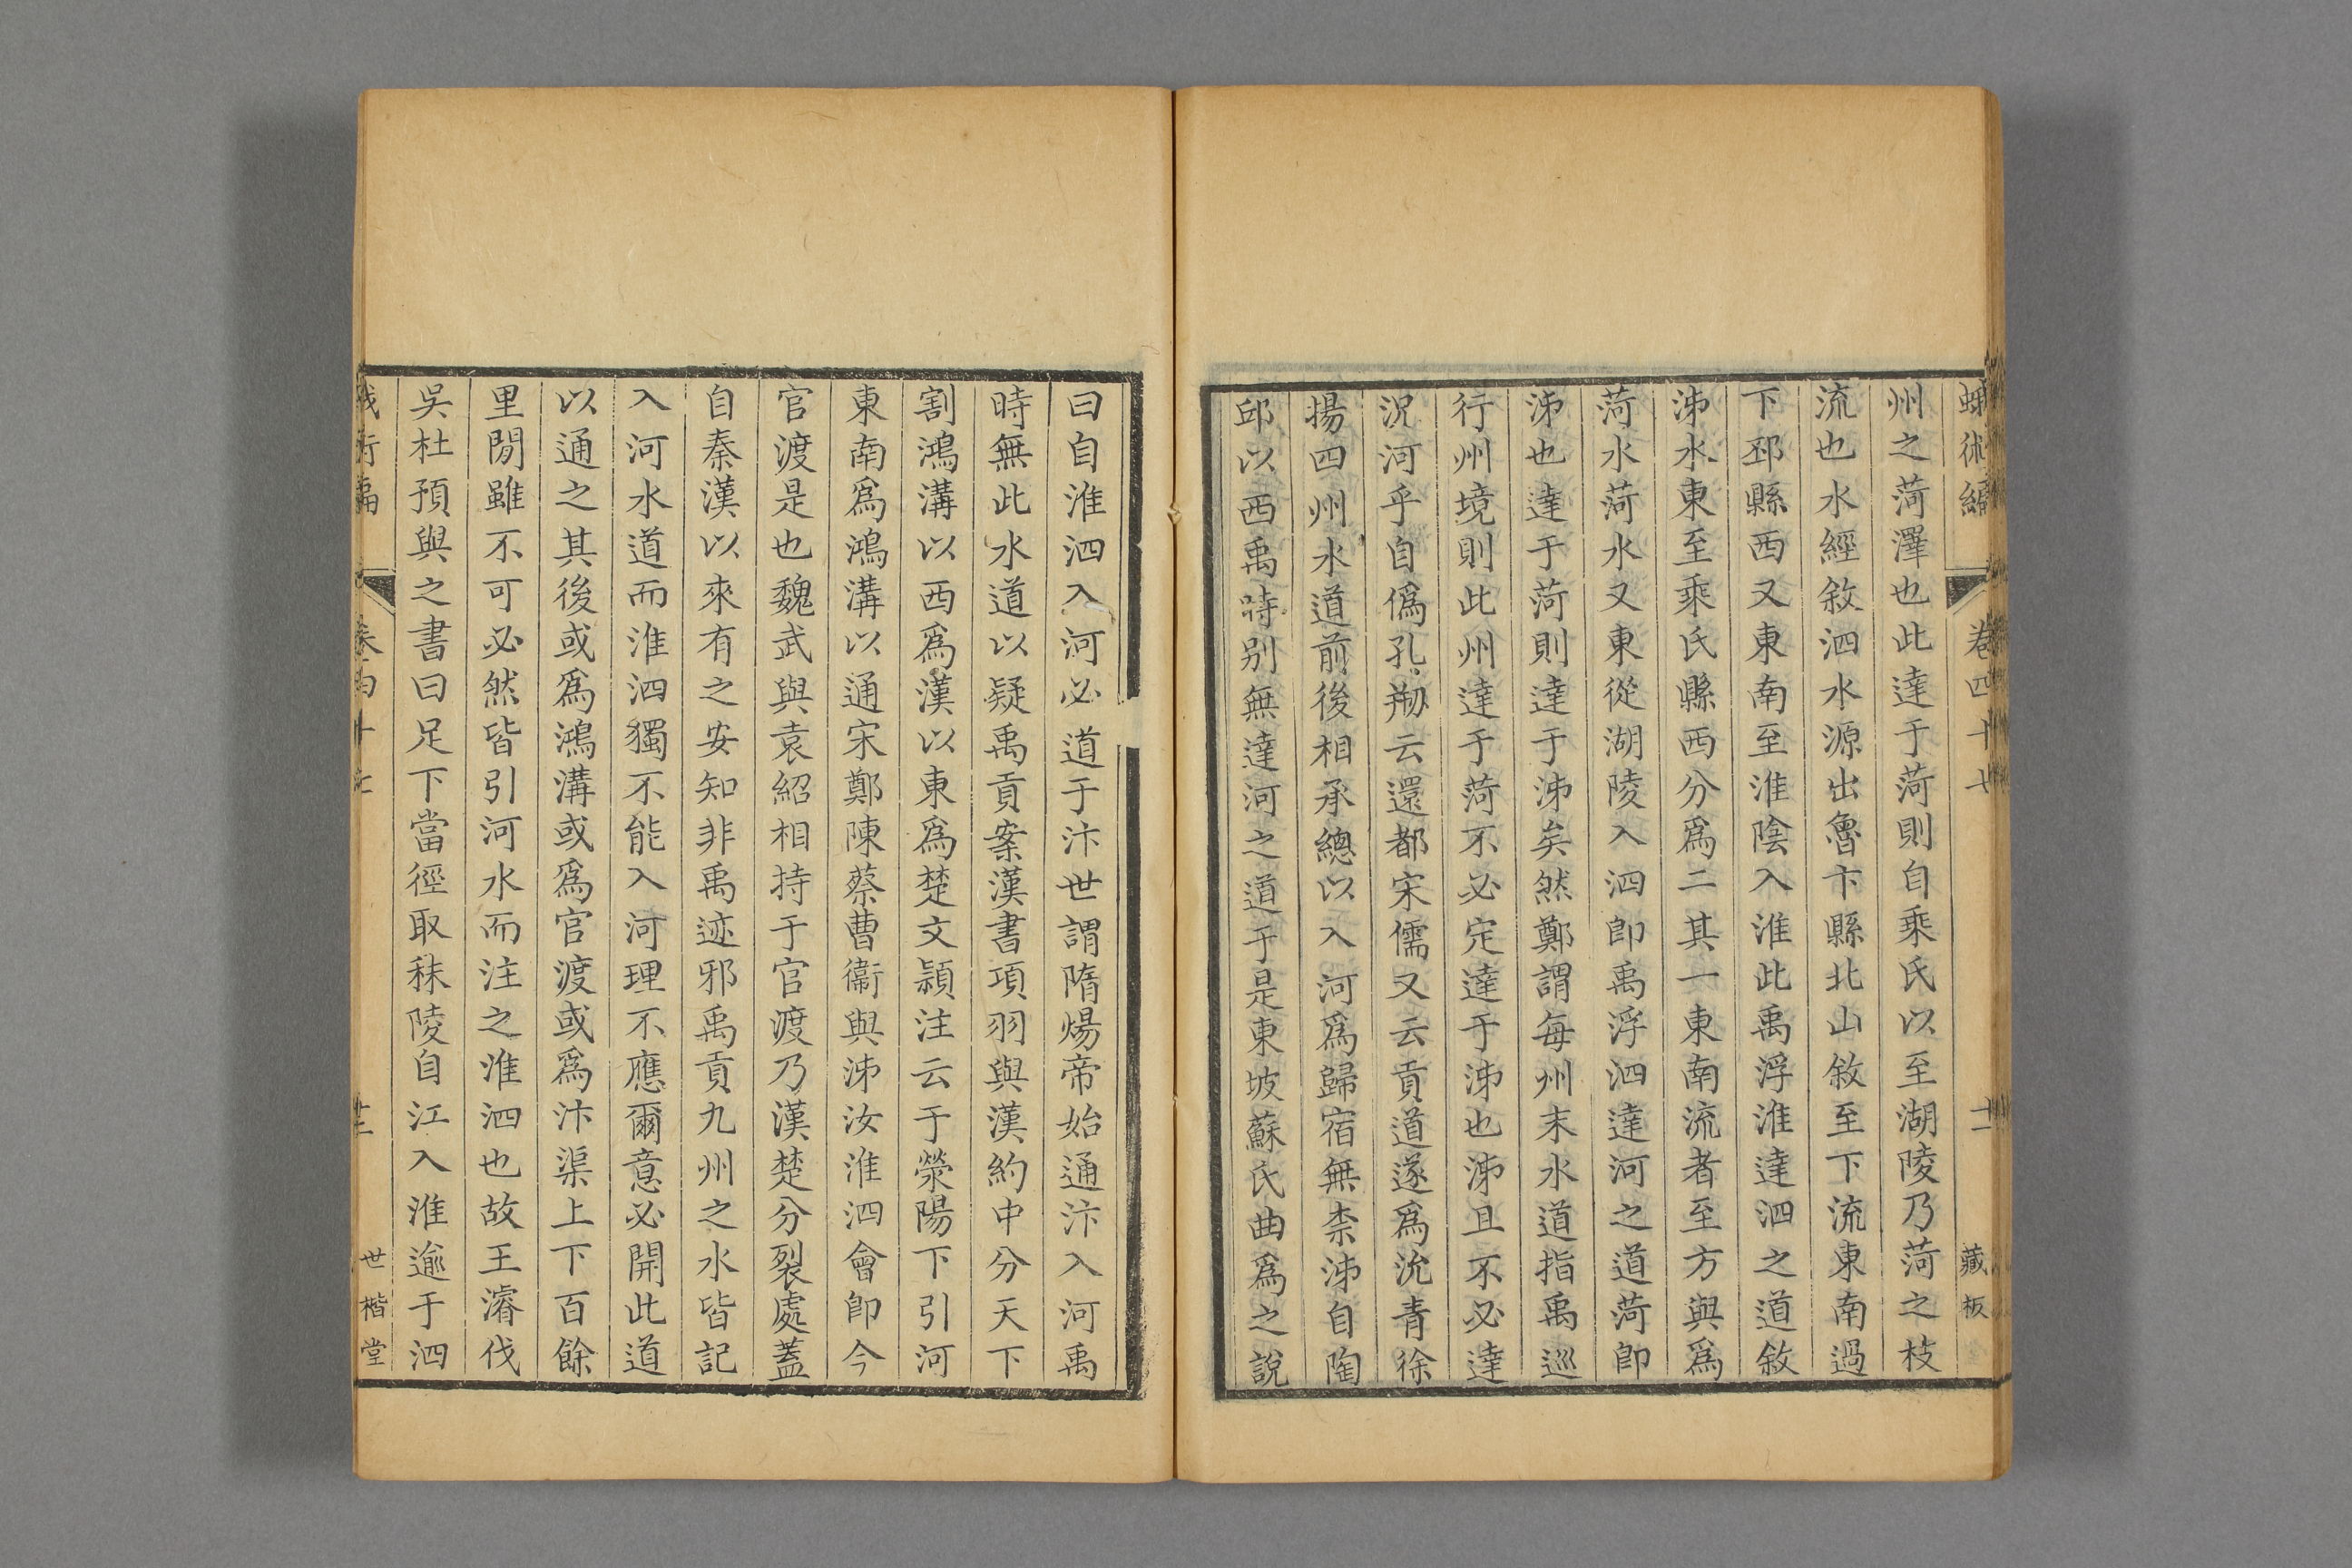 蛾術編 卷四十七 十一 藏板
州之菏澤也此達于菏則自乘氏以至湖陵乃菏之枝
流也水經敘泗水源出魯卞縣北山敘至下流東南過
下邳縣西又東南至淮陰入淮此禹浮淮達泗之道敘
泲水東至乘氏縣西分爲二其一東南流者至方與爲
菏水菏水又東從湖陵入泗卽禹浮泗達河之道菏卽
泲也達于菏則達于泲矣然鄭謂每州末水道指禹巡
行州境則此州達于菏不必定達于泲也泲且不必達
況河乎自僞孔剏云還都宋儒又云貢道遂爲沇青徐
揚四州水道前後相承總以入河爲歸宿無柰泲自陶
邱以西禹時別無達河之道于是東坡蘇氏曲爲之說
曰自淮泗入河必道于汴世謂隋煬帝始通汴入河禹
時無此水道以疑禹貢案漢書項羽與漢約中分天下
割鴻溝以西爲漢以東爲楚文穎注云于滎陽下引河
東南爲鴻溝以通宋鄭陳蔡曹衞與泲汝淮泗會卽今
官渡是也魏武與袁紹相持于官渡乃漢楚分裂處蓋
自秦漢以來有之安知非禹迹邪禹貢九州之水皆記
入河水道而淮泗獨不能入河理不應爾意必開此道
以通之其後或爲鴻溝或爲官渡或爲汴渠上下百餘
里閒雖不可必然皆引河水而注之淮泗也故王濬伐
吳杜預與之書曰足下當徑取秣陵自江入淮逾于泗
世楷堂